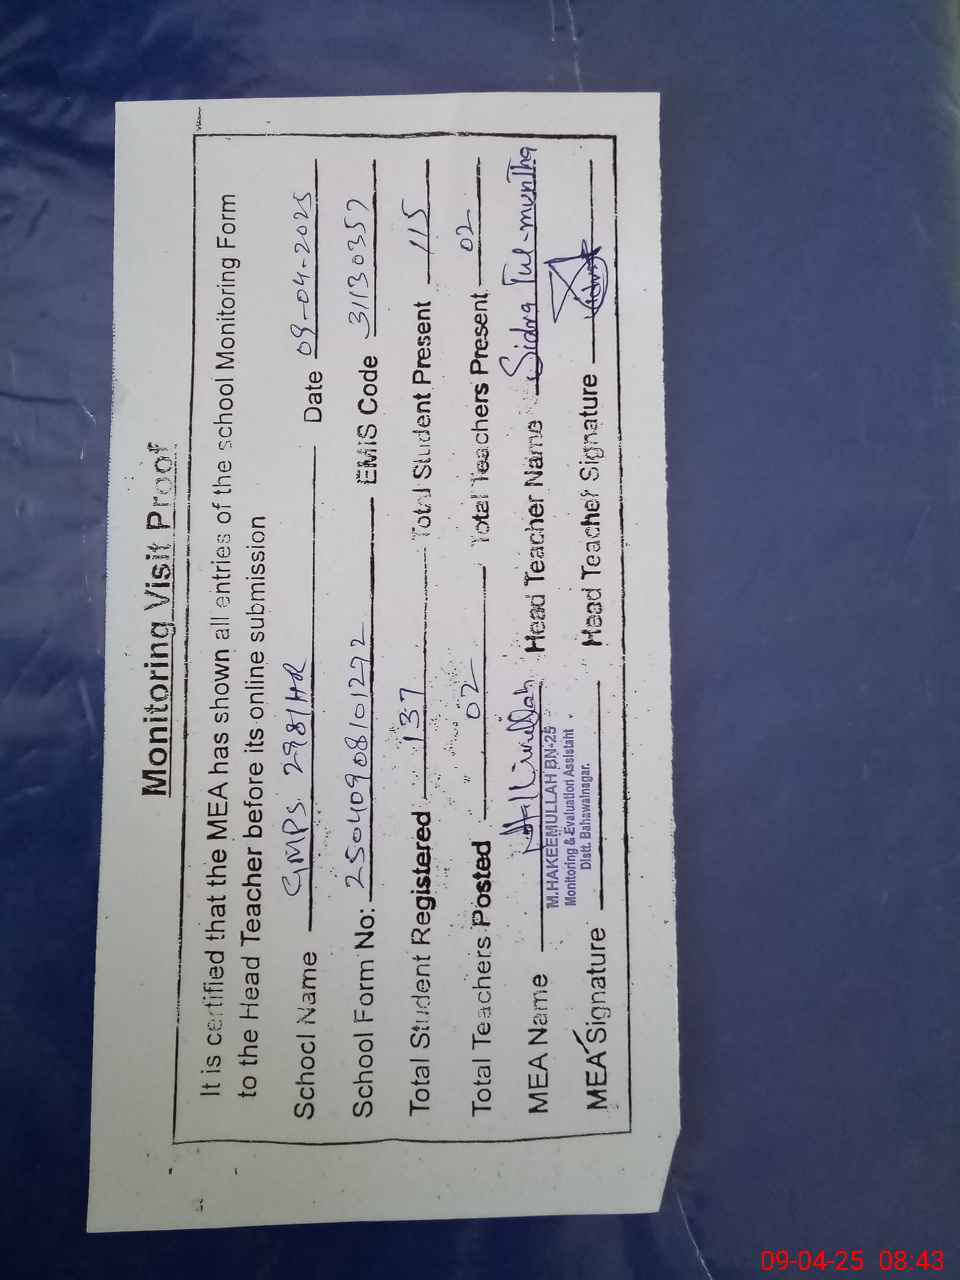 Monitoring Visit Proof
It is certified that the MEA has shown all entries of the school Monitoring Form
to the Head Teacher before its online submission
School Name GMPS 298/HR Date 09-04-2025
School Form No: 250409081012 92 EMIS Code 31130357
Total Student Registered 137 Total Student Present 115
Total Teachers Posted 02 Total Teachers Present 02
MEA Name Head Teacher Name Sidra Tul-muntha
M.HAKEEMULLAH BN-25
Monitoring & Evaluation Assistant
Distt. Bahawalnagar.
MEA Signature Head Teacher Signature
09-04-25 08:43